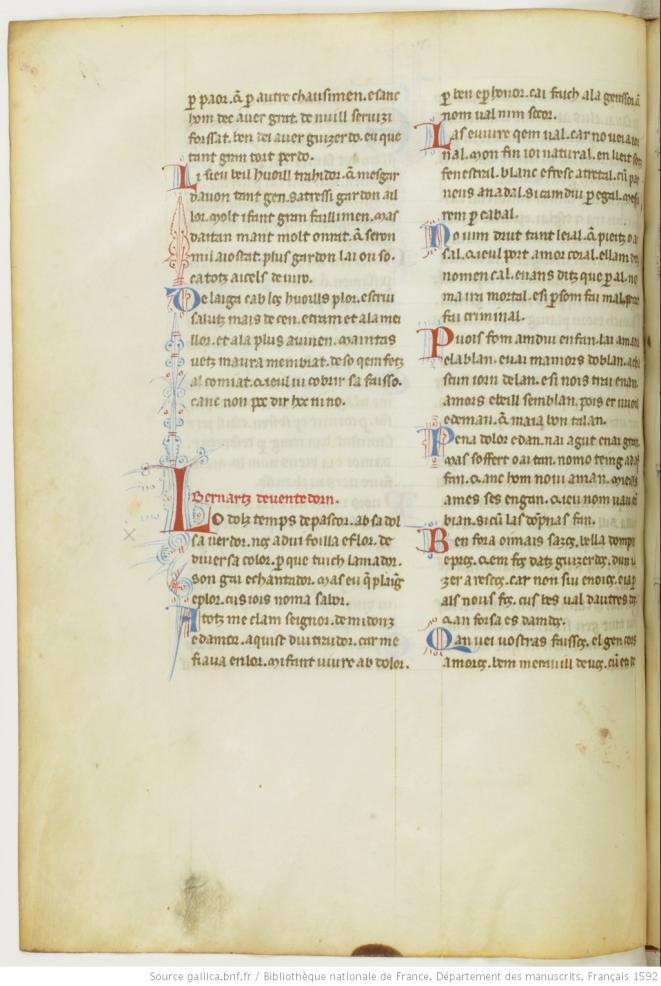 p paor. q̄ p autre chausimen. esanc
hom dec auer grat. de nuill seruizi
forssat. ben dei auer guizerdo. eu que
tant gran tort perdo.
Li sieu beil huoill trahidor. q̄ mesgar
dauon tant gen. satressi gardon ail
lor. molt ifant gran faillimen. mas
daitan mant molt onrat. q̄ seron
mil aiostat. plus gardon lai on so.
ca totz aicels de uiro.
De laiga cab los huoills plor. escriu
salutz mais de cen. etram et ala mei
llor. et ala plus auinen. maintas
uetz maura membrat. de so qem fetz
al comiat. qieul ui cobrir sa faisso.
canc non poc dir hoc ni no.
Bernartz deuentedorn.
Lo dolz temps de pascor. ab sa dol
sa uerdor. nos adui foilla eflor. de
diuersa color. p que tuich lamador.
son gai echantador. mas eu q̄ plaig
eplor. cus iois noma sabor.
A totz me clam seignor. de midonz
edamor. aquist dui traidor. car me
fiaua en lor. mi fant uiure ab dolor.
p ben ep honor. cai faich ala genssor
nom ual nim socor.
Las euiure qem ual. car no uei
nal. mon fin ioi natural. en lieit
fenestral. blanc efresc atretal. cū
neus anadal. si camdui p egal.
rem p cabal.
No uim drut tant leial. q̄ pieitz
sal. qieul port amor coral. ellam
nomen cal. enans ditz que p al. no
ma ira mortal. esi p som fai mal.
fai criminal.
Puois fom amdui enfan. lai amada
ela blan. euai mamors doblan. a
scun iorn delan. esi nois trai enan.
amors ebeill semblan. pois er
edeman. q̄ maia bon talan.
Pena dolor edan. nai agut enai gran
mas soffert o ai tan. nomo teing a
fan. qanc hom noui aman. meills
ames ses engan. qieu nom
bian. si cū las dopnas fan.
Ben fora oimais sazos. bella dompn
epros. qem fos datz guizerdos.
zera rescos. car non sui enoios.
als nous fos. cus bes ual dautres dos
qan forsa es damdos.
Qan uei uostras faissos. el gen cors
amoros. bem merauill deuos. cū
Source gallica.bnf.fr / Bibliothèque nationale de France. Département des manuscrits. Français 1592